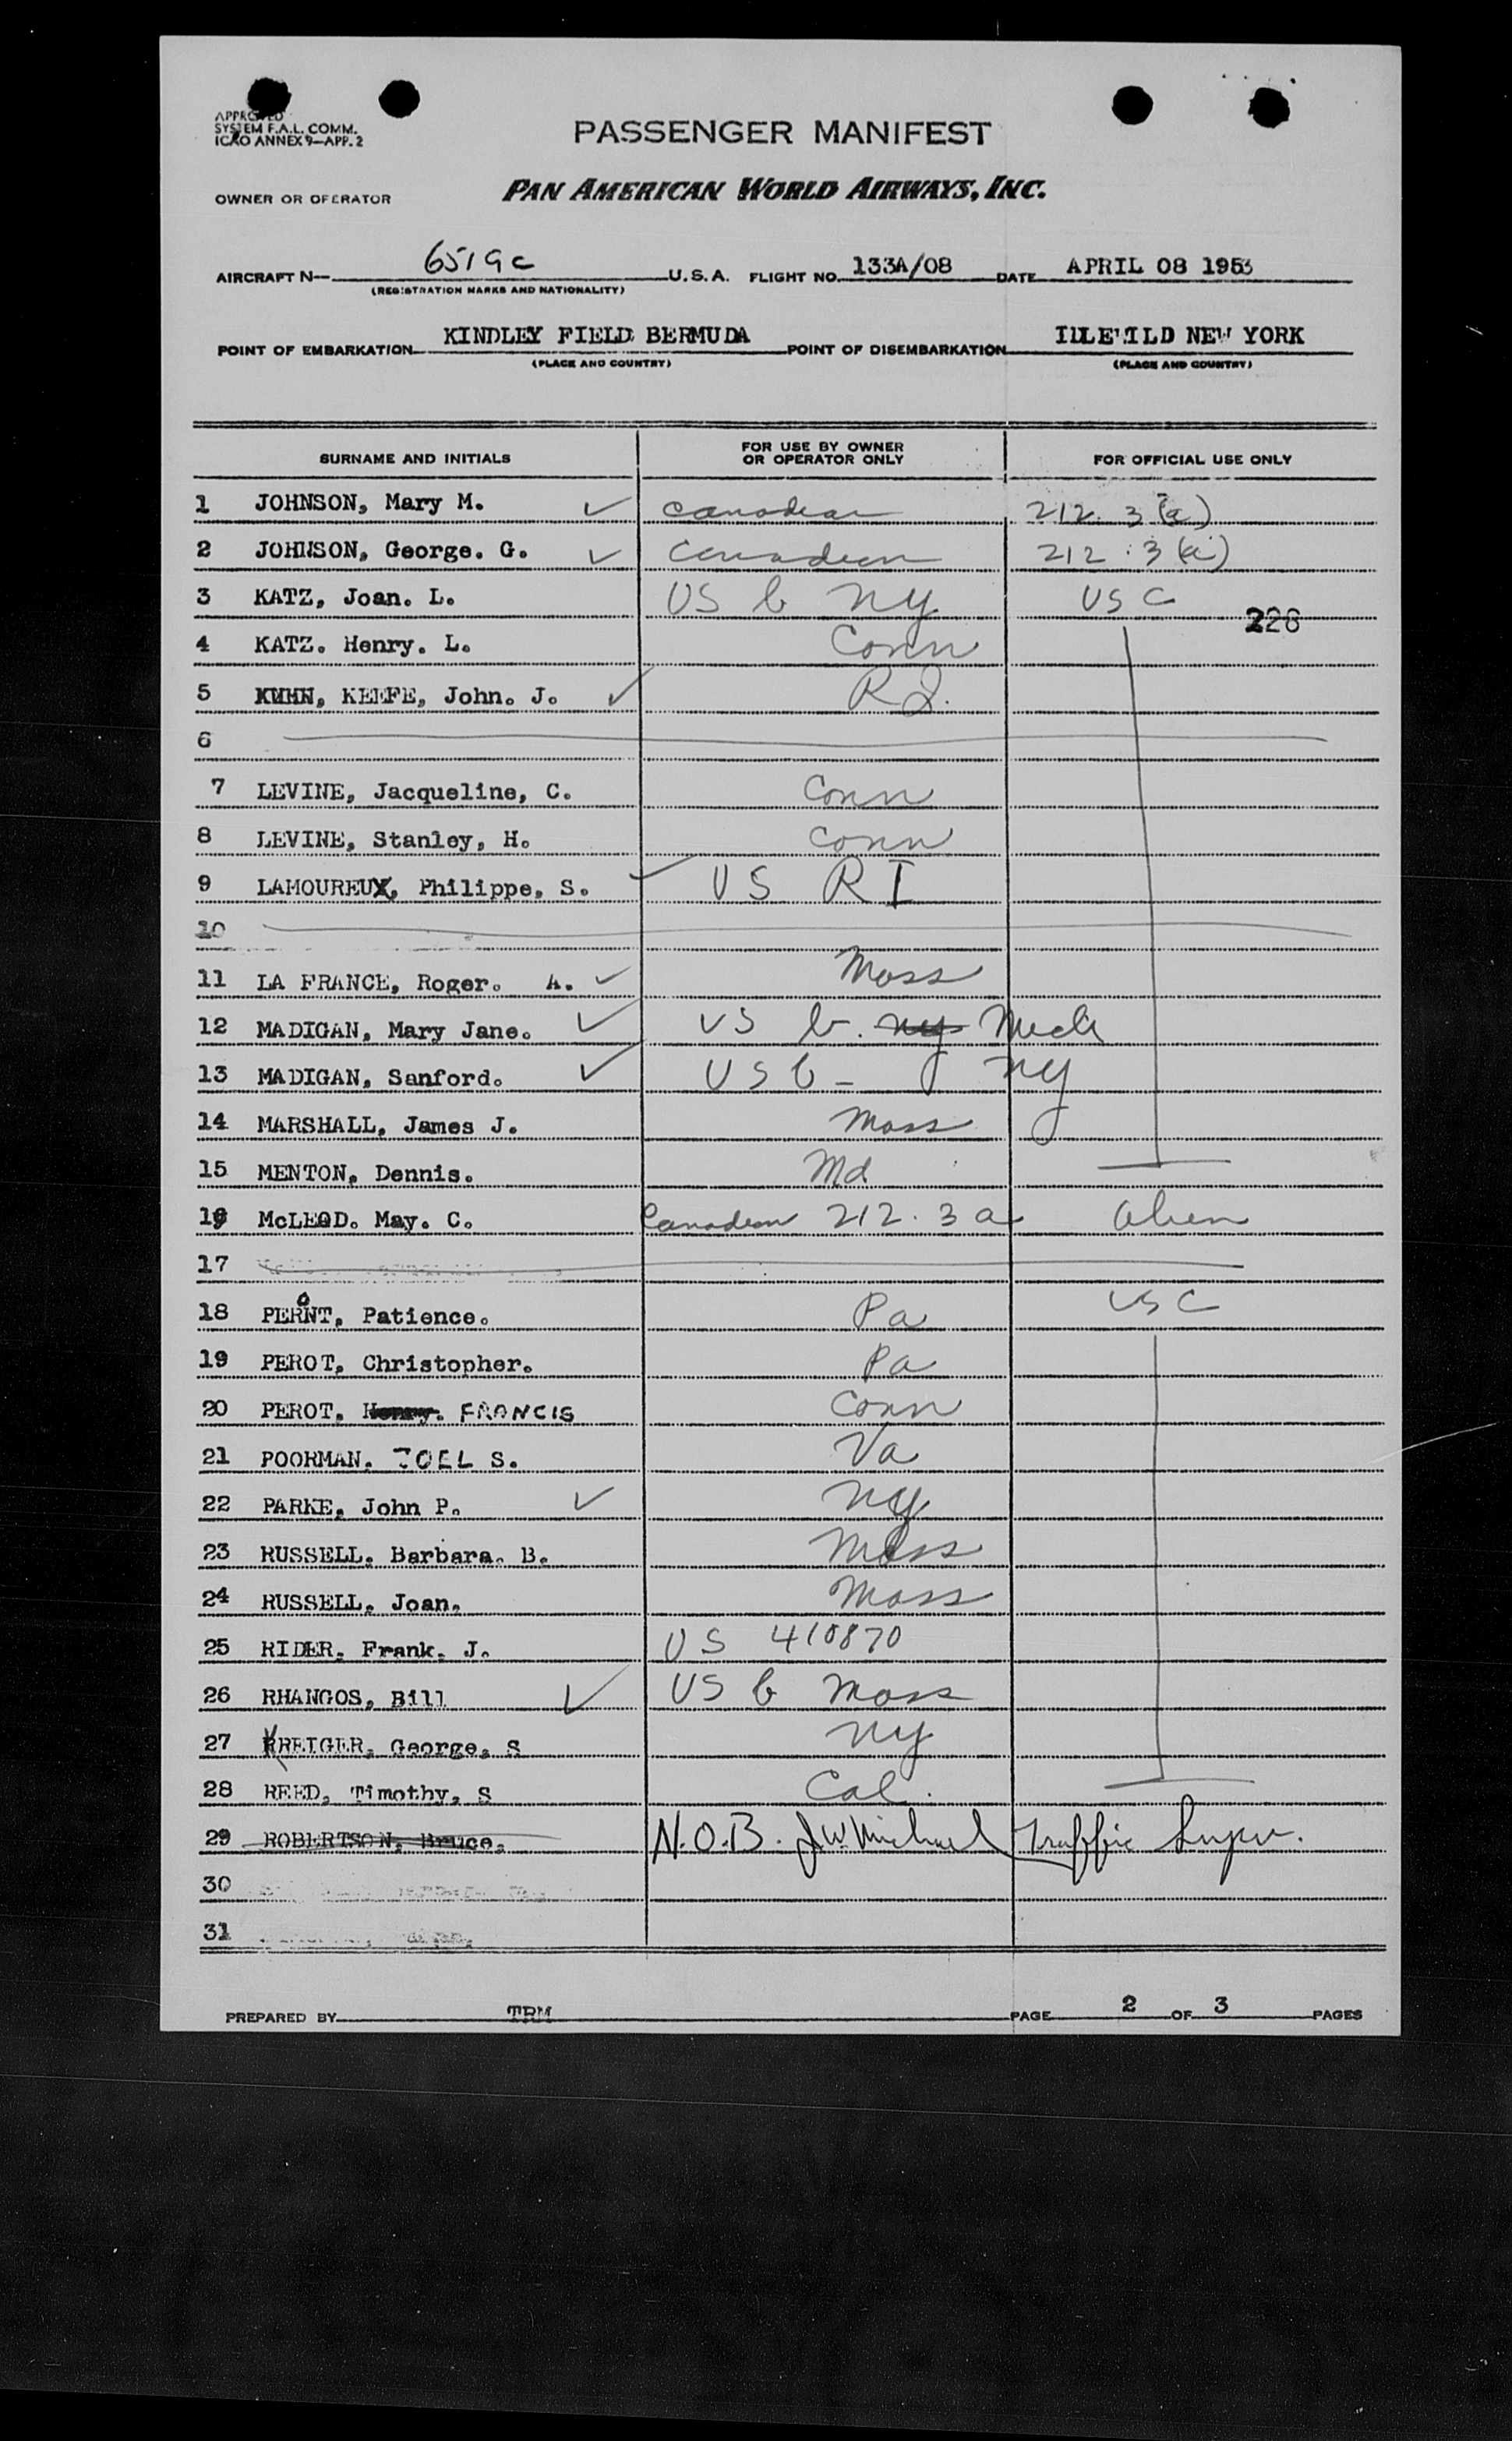 APPROVED
SYSTEM F.A.L. COMM.
ICAO ANNEX 9—APP. 2
PASSENGER MANIFEST
OWNER OR OPERATOR PAN AMERICAN WORLD AIRWAYS, INC.
AIRCRAFT N— 6519C U.S.A. FLIGHT NO. 133A/08 DATE APRIL 08 1953
(REGISTRATION MARKS AND NATIONALITY)
POINT OF EMBARKATION KINDLEY FIELD BERMUDA POINT OF DISEMBARKATION IDLEWILD NEW YORK
(PLACE AND COUNTRY) (PLACE AND COUNTRY)
SURNAME AND INITIALS FOR USE BY OWNER OR OPERATOR ONLY FOR OFFICIAL USE ONLY
1 JOHNSON, Mary M. ✓ Canadian 212.3(a)
2 JOHNSON, George. G. ✓ Canadian 212.3(a)
3 KATZ, Joan. L. US b NY USC
226
4 KATZ. Henry. L. Conn
5 KUHN, KEEFE, John. J. ✓ R I.
6
7 LEVINE, Jacqueline, C. Conn
8 LEVINE, Stanley, H. Conn
9 LAMOUREUX, Philippe, S. ✓ US RI
10
11 LA FRANCE, Roger. A. ✓ Mass
12 MADIGAN, Mary Jane. ✓ US b. ny Mich
13 MADIGAN, Sanford. ✓ US b - NY
14 MARSHALL, James J. Mass
15 MENTON, Dennis. Md
16 McLEOD. May. C. Canadian 212.3a Alien
17
18 PERNT, Patience. Pa USC
19 PEROT, Christopher. Pa
20 PEROT, Henry. FRANCIS Conn
21 POORMAN. JOEL S. Va
22 PARKE, John P. ✓ NY
23 RUSSELL. Barbara. B. Mass
24 RUSSELL, Joan. Mass
25 RIDER, Frank. J. US 410870
26 RHANGOS, Bill ✓ US b Mass
27 KREIGER, George, S NY
28 REED, Timothy, S Cal.
29 ROBERTSON, Bruce. N.O.B. J W Michael Traffic Supv.
30
31
PREPARED BY TRM PAGE 2 OF 3 PAGES